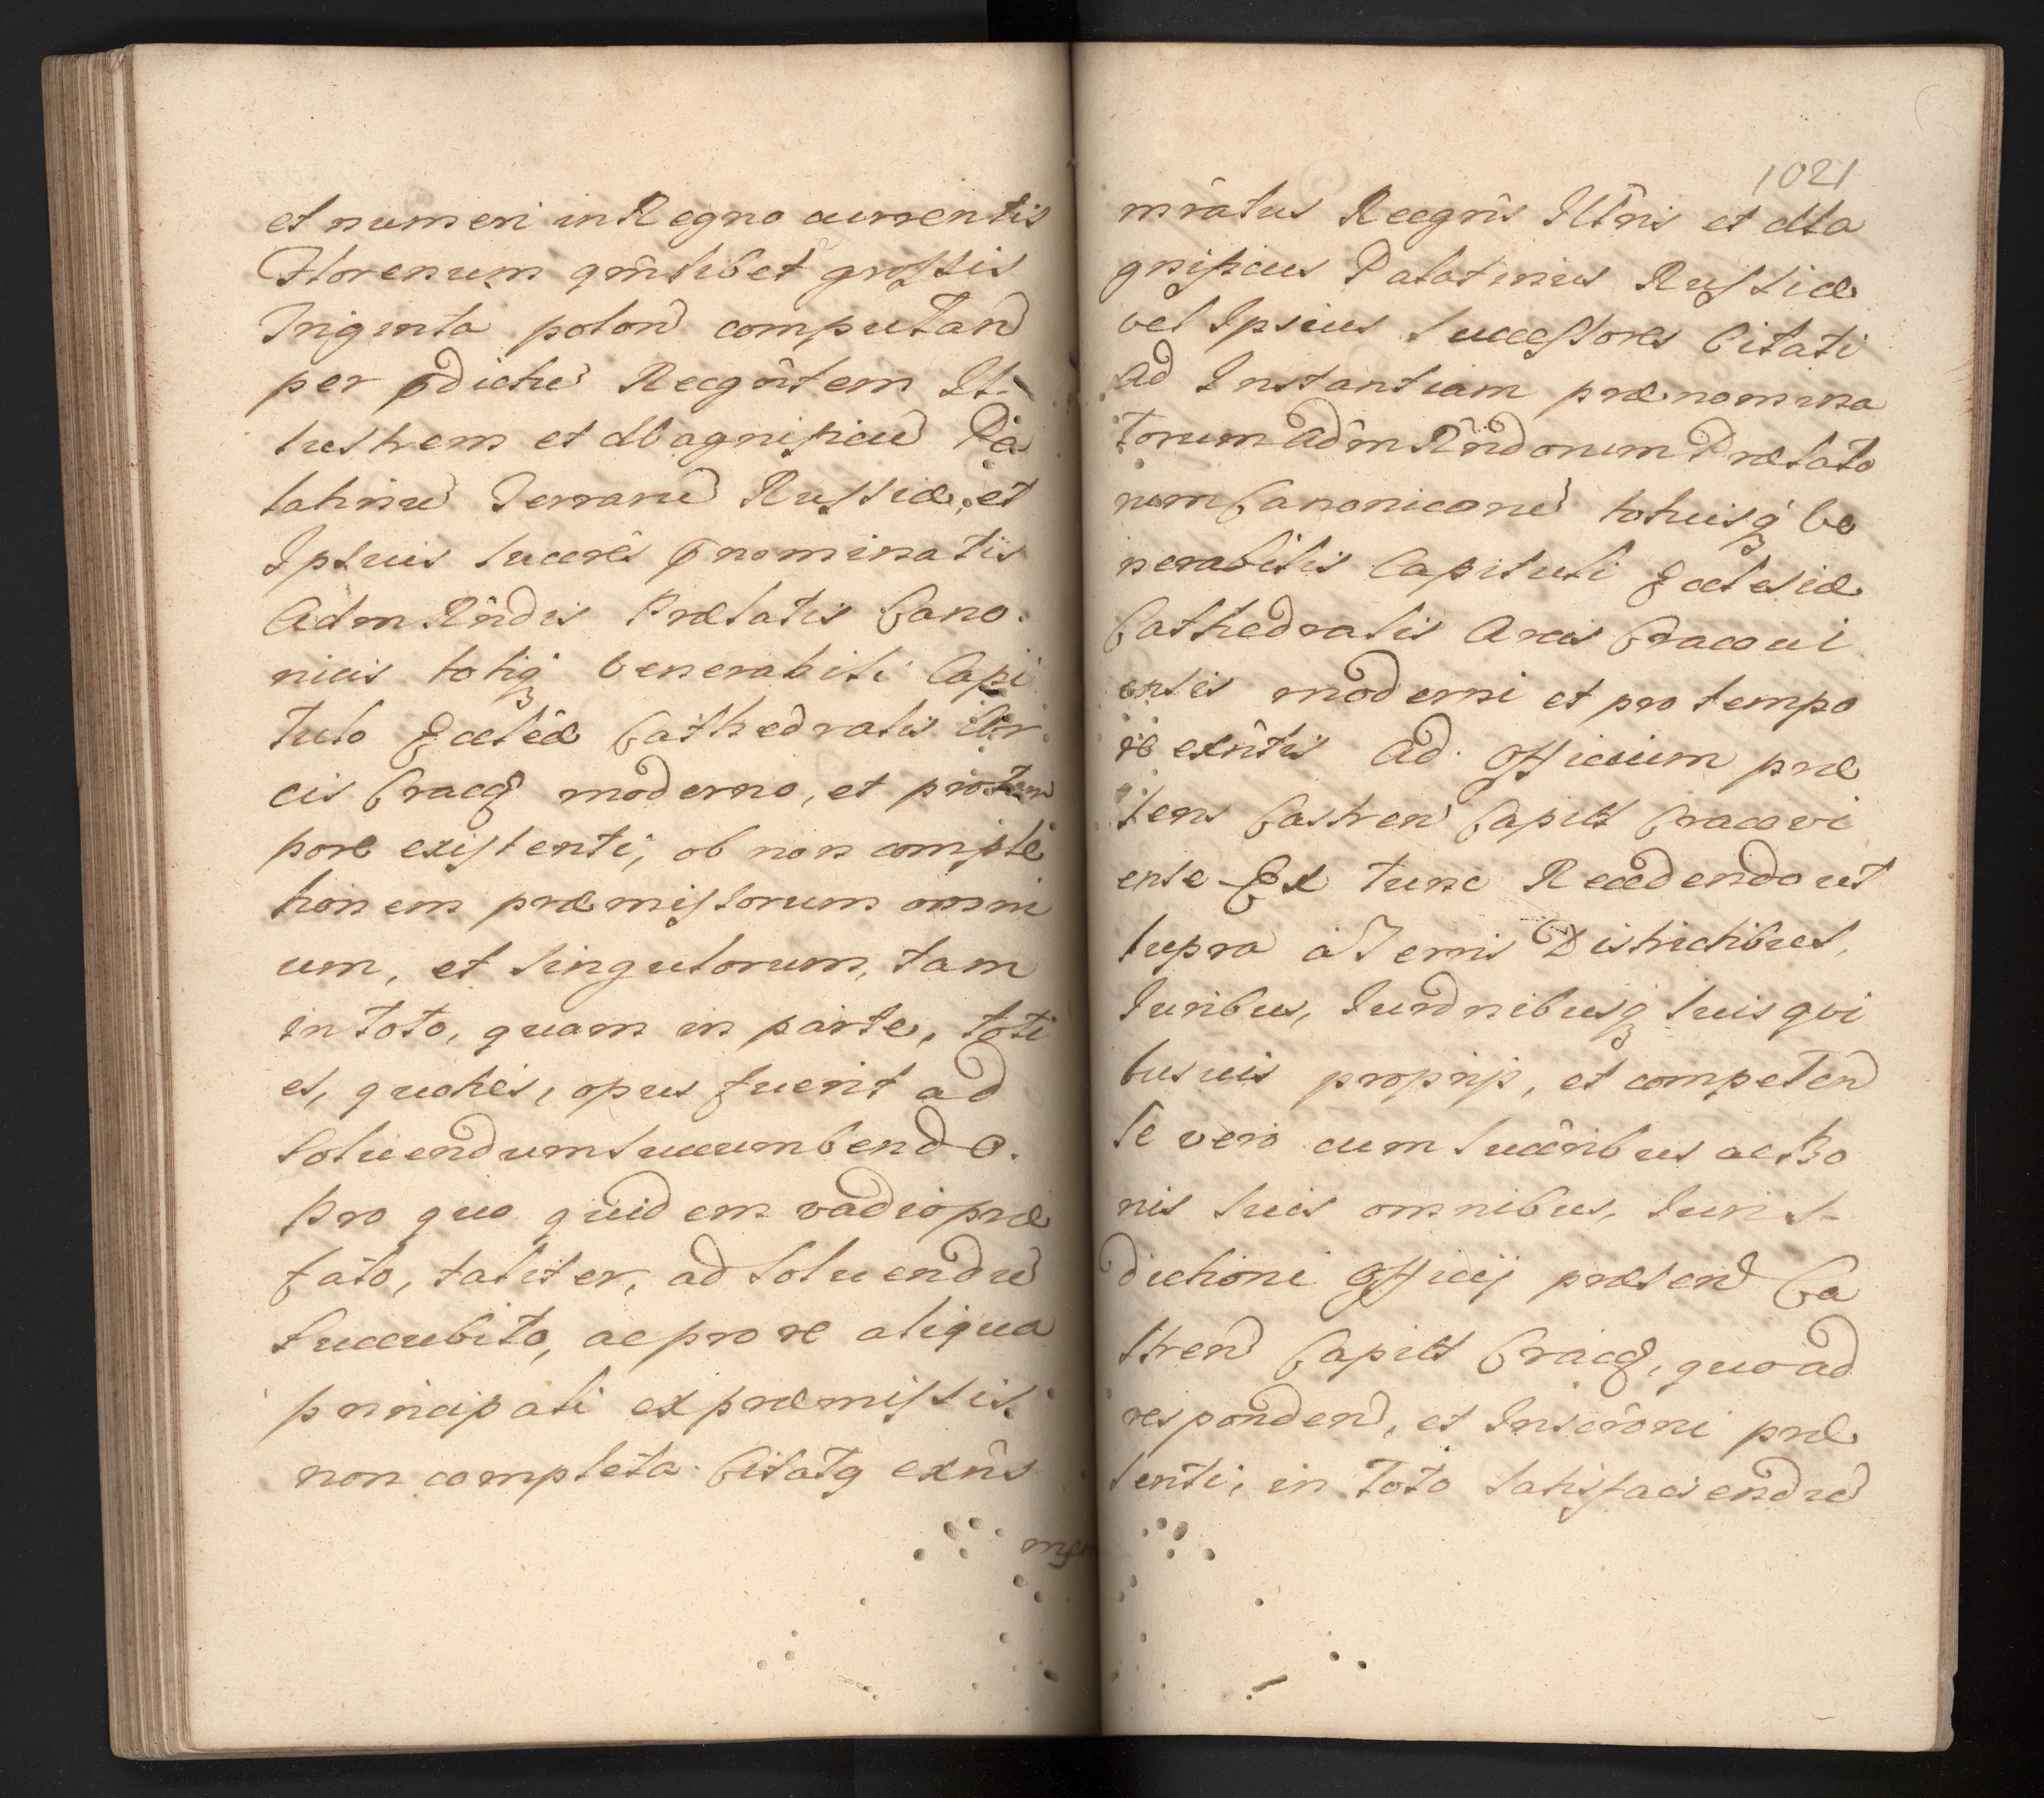 et numeri in Regno currentis
Florenum qm̃libet grossis
Triginta polon̄ computan̄
per p̄dictū Recgñtem Il-
lustrem et Magnificū Pa
latinū Terrarū Russiæ, et
Ipsius succeēs p̄nominatis
Adm Rñdis Prælatis Cano.
nicis totiq₃ Venerabili Capi
tulo Eccleæ Cathedralis Ar
cis Cracō moderno, et pro tem
pore existenti, ob non comple
tionem præmissorum omni
um, et singulorum, tam
in toto, quam in parte, toti
es, quoties, opus fuerit ad
soluendum succumbendo.
Pro quo quidem vadio præ
fato, taliter, ad soluendū
succubito, ac pro re aliqua
principali ex præmissis
non completa. Citatq exñs

1021
mr̃atus Recgñs Illr̃is et Ma
gnificus Palatinus Russiæ
vel Ipsius successores Citati
ad Instantiam prænomina
torum Adm̃ Rñdorum Prælato
rum Canonicorū totiusq₃ Ve
nerabilis Capituli Ecclesiæ
Cathedralis Arcis Cracovi
ensis moderni et pro tempo
re exñtis ad Officium præ
sens Castren̄ Capitl Cracovi
ense Ex tunc Recedendo ut
supra à Terris Districtibus,
Iuribus, Iurdnibusq₃ suis qui
busuis proprijs, et competen̄
Se vero cum succr̃ibus ac Bo
nis suis omnibus, Iuris-
dictioni Officij præsen̄ Ca
stren̄ Capitl Cracō, quoad
responden̄, et Inscr̃oni præ
senti, in toto satisfaciendū